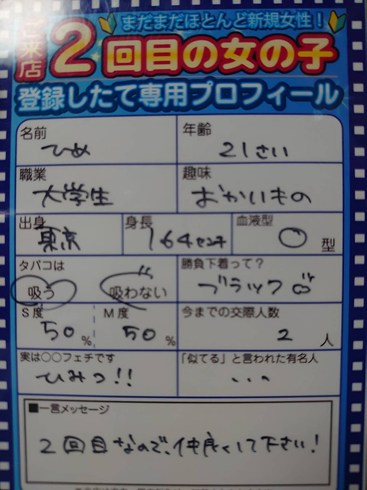 ご来店
まだまだほとんど新規女性！
2回目の女の子
登録したて専用プロフィール
名前 年齢
ひめ 21さい
職業 趣味
大学生 おかいもの
出身 身長 血液型
東京 164センチ ○型
タバコは 勝負下着って？
吸う 吸わない ブラック
S度 M度 今までの交際人数
50% 50% 2人
実は○○フェチです 「似てる」と言われた有名人
ひみつ!! ...
■一言メッセージ
2回目なので、仲良くして下さい!